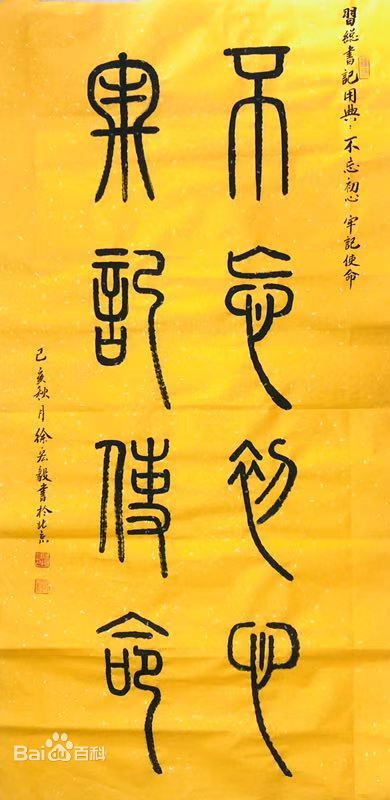 習總書記用典：不忘初心 牢記使命
不忘初心
牢記使命
己亥秋月徐宏毅書於北京
Bai百科